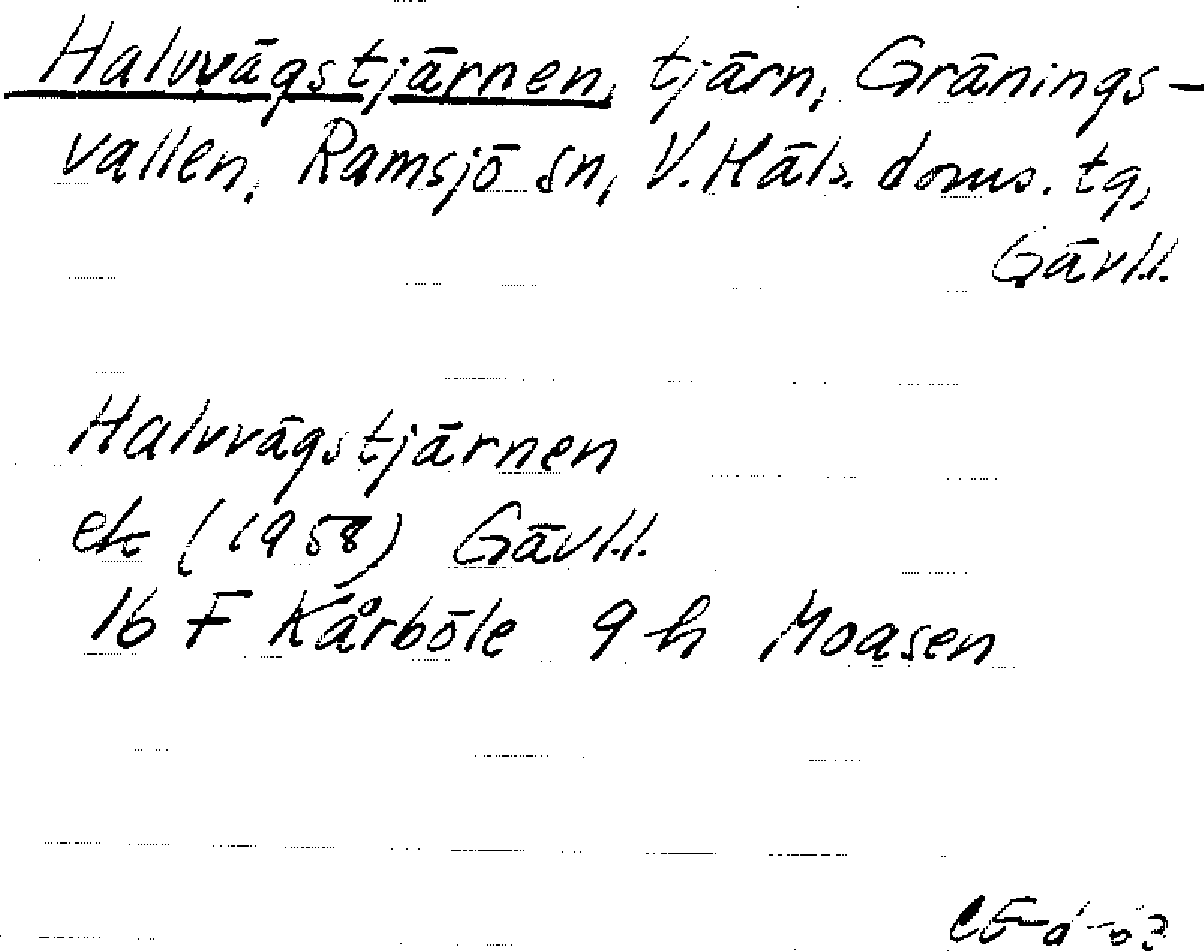 Halvvägstjärnen, tjärn, Gränings-
vallen, Ramsjö sn, V. Häls. doms. tg,
Gävl.l.
Halvvägstjärnen
ek (1958) Gävl.l.
16 F Kårböle 9 h Moasen